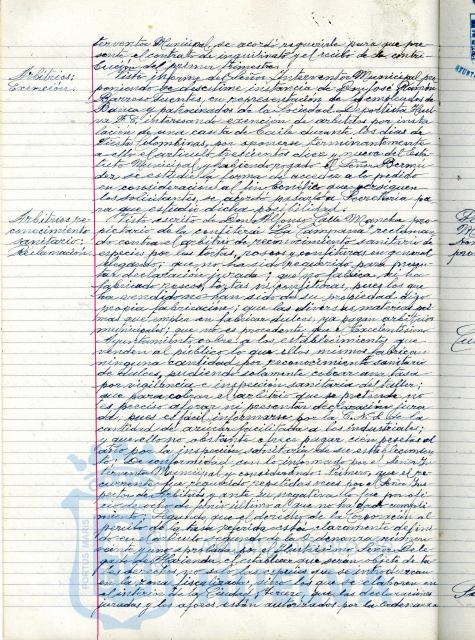 terventor Municipal, se acordó requerirle para que pre
sente el contrato de inquilinato y el recibo de la contri
bución del primer trimestre.
Arbitrios:
Exención.
Visto informe del Señor Interventor Municipal pro
poniendo se desestime instancia de Don José Ramón
Barroso Fuentes, en representación de los empleados de
Banca y patrocinador de la Sociedad Deportista Huel
va F.C. interesando exención de arbitrios por insta
lación de una caseta de baile durante los días de
Fiestas Colombinas, por oponerse terminantemente
a ello el artículo trescientos diez y nueve del Esta
tuto Municipal y habiendo rogado el Señor Bermu
dez se estudie la forma de acceder a lo pedido
en consideración al fin benéfico que persiguen
los solicitantes, se acordó pasarlo a Secretaría pa
ra que estudie dicha posibilidad.
Arbitrios re-
conocimiento
sanitario:
Reclamación.
Visto escrito de Don Alfonso Calle Mancha pro
pietario de la confitería "La Campana" reclaman
do contra el arbitrio de reconocimiento sanitario de
especies por las tortas, roscos y confituras en general
alegando: que no ha sido requerido para presen
tar declaración jurada; que no fabrica, ni ha
fabricado roscos, tortas ni confituras, pues los que
ha vendido no han sido de su propiedad, digo
propia fabricación; que las diversas materias pri
mas que emplea en fabricar dulces, ya pagan arbitrios
municipales; que no es procedente que el Excelentísimo
Ayuntamiento cobre a los establecimientos que
venden al público lo que ellos mismos fabrican
ninguna cantidad por reconocimiento sanitario
de dulces, pudiendo solamente cobrar una tasa
por vigilancia e inspección sanitaria del taller;
que para cobrar el arbitrio que se pretende no
es preciso aforar ni presentar declaración jura
da, pues es fácil informarse por la de la
cantidad de azúcar facilitada a los industriales;
y que ello no obstante ofrece pagar cien pesetas al
año por la inspección sanitaria de su establecimien
to; De conformidad con lo informado por el Señor In
terventor Municipal y considerando: Primero, que el re
currente fue requerido repetidas veces por el Señor Ins
pector de Arbitrios y ante su negativa lo fue por ofi
cio de ocho de Junio último al que no ha dado cumpli
miento; Segundo, que el derecho de la Corporación al
percibo de la tasa referida está claramente defini
do en el artículo segundo de la Ordenanza núm.
veinte y uno aprobada por el Ilustrísimo Señor Dele
gado de Hacienda al establecer que serán objeto de ta
les derechos no solo las especies que se introduzcan
en la zona fiscalizada, sino los que se elaboren en
el interior de la Ciudad; Tercero, que las declaraciones
juradas y los aforos están autorizados por la Ordenanza